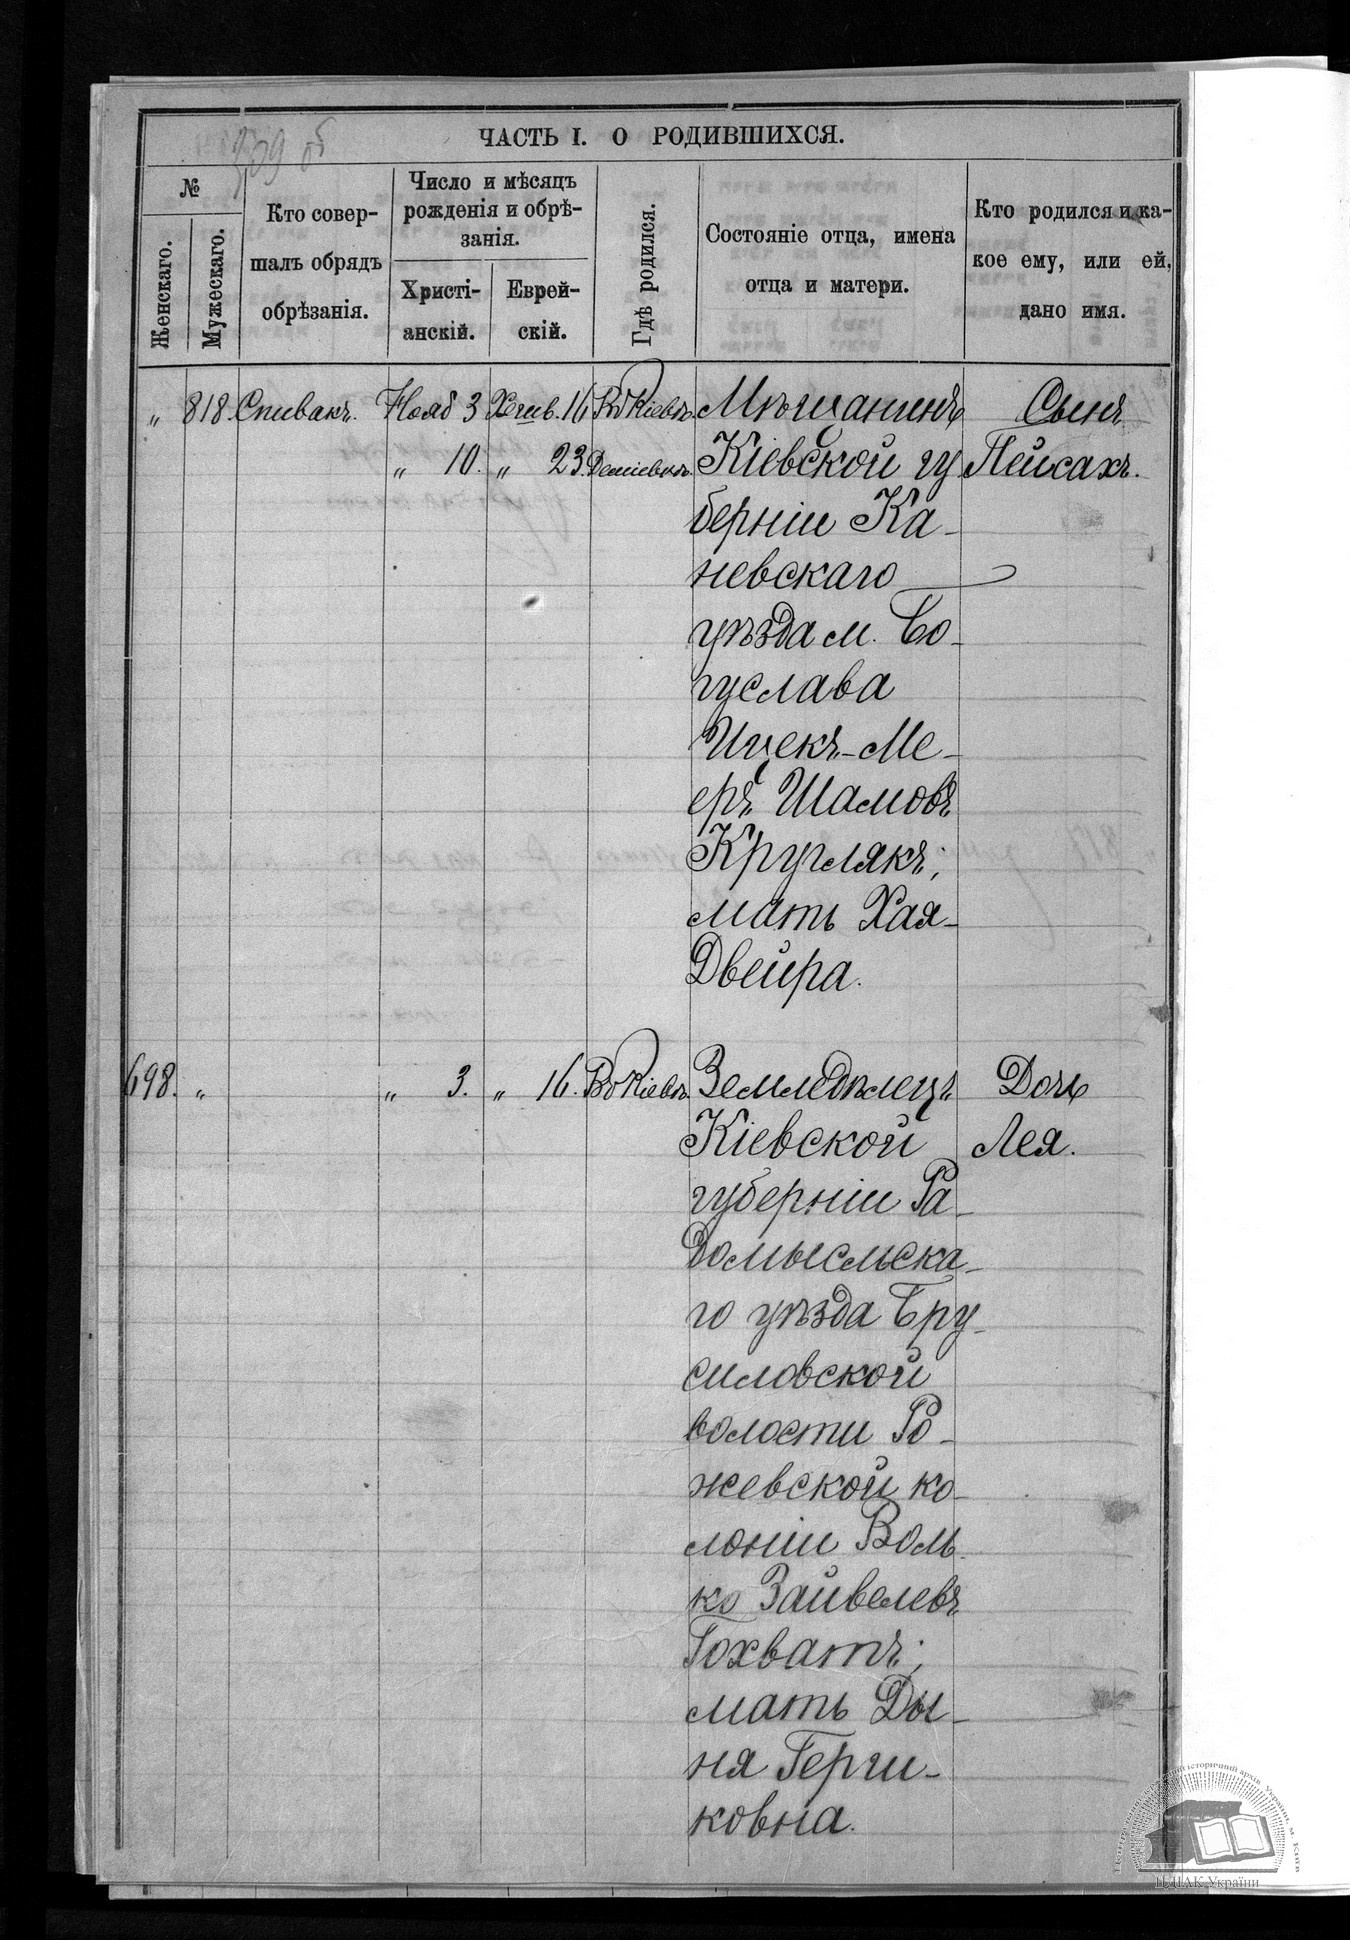 309 об
ЧАСТЬ I. О РОДИВШИХСЯ.
№
Женскаго.
Мужескаго.
Кто совер-
шалъ обрядъ
обрѣзанія.
Число и мѣсяцъ
рожденія и обрѣ-
занія.
Христі-
анскій.
Еврей-
скій.
Гдѣ родился.
Состояніе отца, имена
отца и матери.
Кто родился и ка-
кое ему, или ей,
дано имя.
„ 818. Спивакъ. Нояб 3 Хешв. 16 Въ Кіевѣ. Мѣщанинъ Сынъ
„ 10. „ 23. Деміевкѣ. Кіевской гу Пейсахъ.
берніи Ка-
невскаго
уѣзда м. Бо-
гуслава
Ицекъ-Ме-
еръ Шамовъ
Круглякъ;
мать Хая-
Двейра.
698. „ „ 3. „ 16. Въ Кіевѣ. Земледѣлецъ Дочь
Кіевской Лея.
губерніи Ра-
домысльска-
го уѣзда Бру-
силовской
волости Ро-
жевской ко-
лоніи Воль-
ко Зайвелевъ
Гохватъ;
мать Ды-
ня Герши-
ковна.
ЦДІАК України